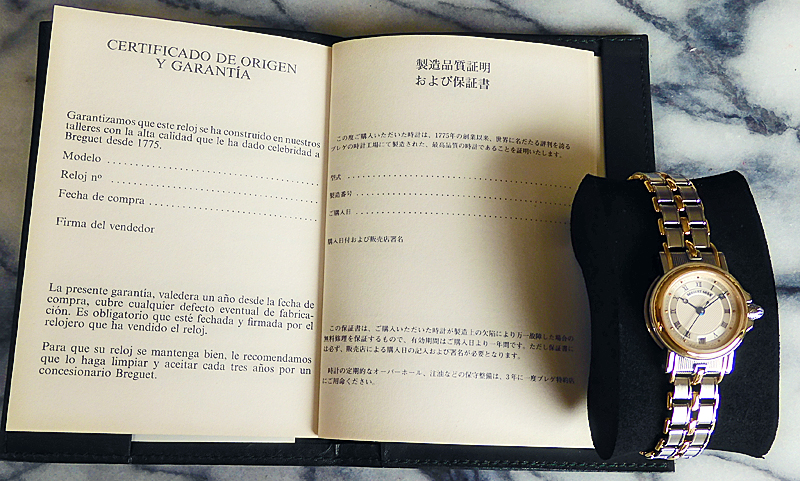 CERTIFICADO DE ORIGEN
Y GARANTÍA
Garantizamos que este reloj se ha construido en nuestros
talleres con la alta calidad que le ha dado celebridad a
Breguet desde 1775.
Modelo
Reloj nº
Fecha de compra
Firma del vendedor
La presente garantía, valedera un año desde la fecha de
compra, cubre cualquier defecto eventual de fabrica-
ción. Es obligatorio que esté fechada y firmada por el
relojero que ha vendido el reloj.
Para que su reloj se mantenga bien, le recomendamos
que lo haga limpiar y aceitar cada tres años por un
concesionario Breguet.
製造品質証明
および保証書
この度ご購入いただいた時計は、1775年の創業以来、世界に名だたる評判を誇る
ブレゲの時計工場にて製造された、最高品質の時計であることを証明いたします。
型式
製造番号
ご購入日
購入日付および販売店署名
この保証書は、ご購入いただいた時計が製造上の欠陥により万一故障した場合の
無料修理を保証するもので、有効期間はご購入日より一年間です。ただし保証書に
は必ず、販売店による購入日の記入および署名が必要となります。
時計の定期的なオーバーホール、注油などの保守整備は、3年に一度ブレゲ特約店
にご用命ください。